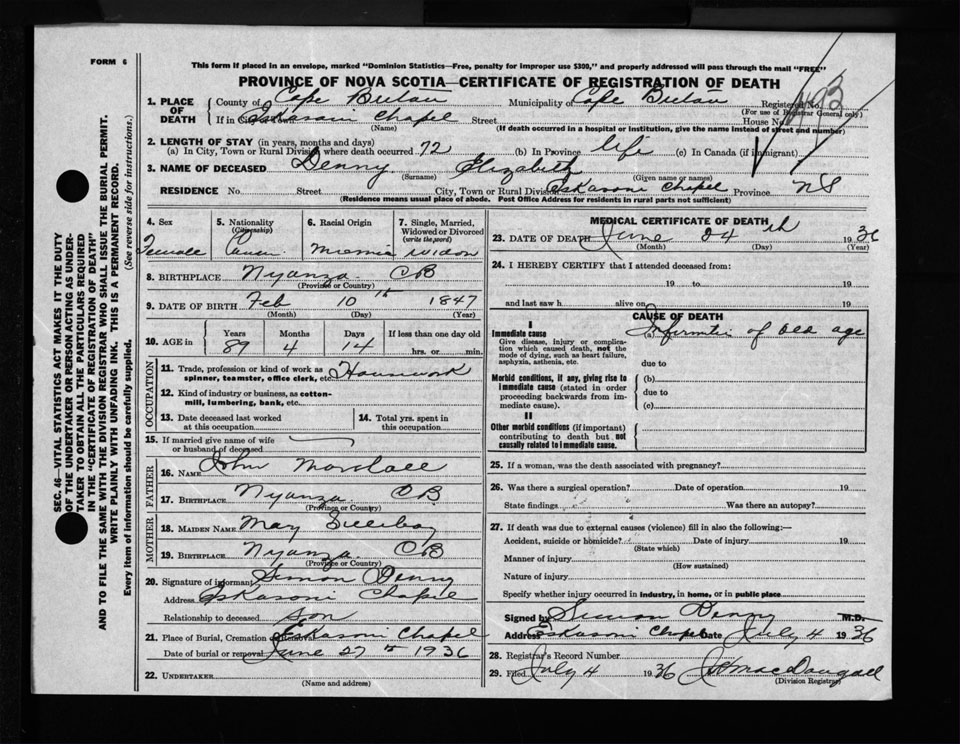 FORM 6
This form if placed in an envelope, marked "Dominion Statistics—Free, penalty for improper use $300," and properly addressed will pass through the mail "FREE"
PROVINCE OF NOVA SCOTIA—CERTIFICATE OF REGISTRATION OF DEATH
1. PLACE OF DEATH
County of Cape Breton Municipality of Cape Breton Registered No.
(For use of Registrar General only)
If in City or Town Eskasoni Chapel Street House No.
(Name) (If death occurred in a hospital or institution, give the name instead of street and number)
2. LENGTH OF STAY (in years, months and days)
(a) In City, Town or Rural Division where death occurred 72 (b) In Province life (c) In Canada (if immigrant)
3. NAME OF DECEASED Denny Elizabeth
(Surname) (Given name or names)
RESIDENCE No. Street City, Town or Rural Division Eskasoni Chapel Province NS
(Residence means usual place of abode. Post Office Address for residents in rural parts not sufficient)
4. Sex
Female
5. Nationality
(Citizenship)
6. Racial Origin
7. Single, Married, Widowed or Divorced
(write the word)
widow
8. BIRTHPLACE Nyanza CB
(Province or Country)
9. DATE OF BIRTH Feb 10th 1847
(Month) (Day) (Year)
10. AGE in
Years Months Days If less than one day old
89 4 14 hrs. or min.
OCCUPATION
11. Trade, profession or kind of work as spinner, teamster, office clerk, etc. Housework
12. Kind of industry or business, as cotton-mill, lumbering, bank, etc.
13. Date deceased last worked at this occupation
14. Total yrs. spent in this occupation
15. If married give name of wife or husband of deceased
FATHER
16. NAME John
17. BIRTHPLACE Nyanza CB
(Province or Country)
MOTHER
18. MAIDEN NAME May
19. BIRTHPLACE Nyanza CB
(Province or Country)
20. Signature of informant Simon Denny
Address Eskasoni Chapel
Relationship to deceased son
21. Place of Burial, Cremation or Removal Eskasoni Chapel
Date of burial or removal June 27th 1936
22. UNDERTAKER
(Name and address)
MEDICAL CERTIFICATE OF DEATH
23. DATE OF DEATH June 24th 1936
(Month) (Day) (Year)
24. I HEREBY CERTIFY that I attended deceased from:
19 to 19
and last saw h alive on 19
CAUSE OF DEATH
I
Immediate cause
Give disease, injury or complication which caused death, not the mode of dying, such as heart failure, asphyxia, asthenia, etc.
(a) of old age
due to
Morbid conditions, if any, giving rise to immediate cause (stated in order proceeding backwards from immediate cause).
(b)
due to
(c)
II
Other morbid conditions (if important) contributing to death but not causally related to immediate cause.
25. If a woman, was the death associated with pregnancy?
26. Was there a surgical operation? Date of operation 19
State findings Was there an autopsy?
27. If death was due to external causes (violence) fill in also the following:—
Accident, suicide or homicide? Date of injury 19
(State which)
Manner of injury
(How sustained)
Nature of injury
Specify whether injury occurred in industry, in home, or in public place
Signed by Simon Denny M.D.
Address Eskasoni Chapel Date July 4 1936
28. Registrar's Record Number
29. Filed July 4 1936 MacDougall
(Division Registrar)
SEC. 46—VITAL STATISTICS ACT MAKES IT THE DUTY
OF THE UNDERTAKER OR PERSON ACTING AS UNDER-
TAKER TO OBTAIN ALL THE PARTICULARS REQUIRED
IN THE "CERTIFICATE OF REGISTRATION OF DEATH"
AND TO FILE THE SAME WITH THE DIVISION REGISTRAR WHO SHALL ISSUE THE BURIAL PERMIT.
WRITE PLAINLY WITH UNFADING INK. THIS IS A PERMANENT RECORD.
Every item of information should be carefully supplied. (See reverse side for instructions.)